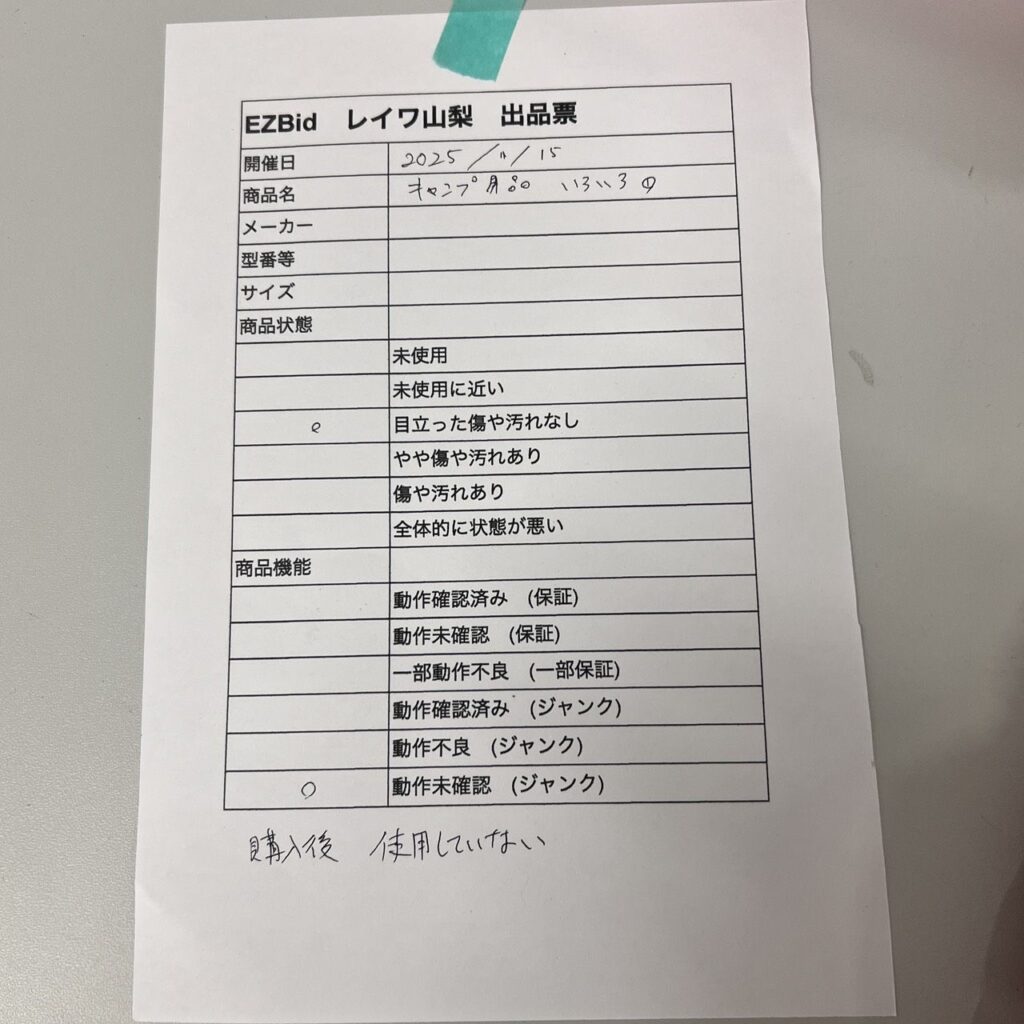 EZBid レイワ山梨 出品票
開催日 2025/11/15
商品名 キャンプ用品 いろいろ①
メーカー
型番等
サイズ
商品状態
未使用
未使用に近い
○ 目立った傷や汚れなし
やや傷や汚れあり
傷や汚れあり
全体的に状態が悪い
商品機能
動作確認済み (保証)
動作未確認 (保証)
一部動作不良 (一部保証)
動作確認済み (ジャンク)
動作不良 (ジャンク)
○ 動作未確認 (ジャンク)
購入後 使用していない